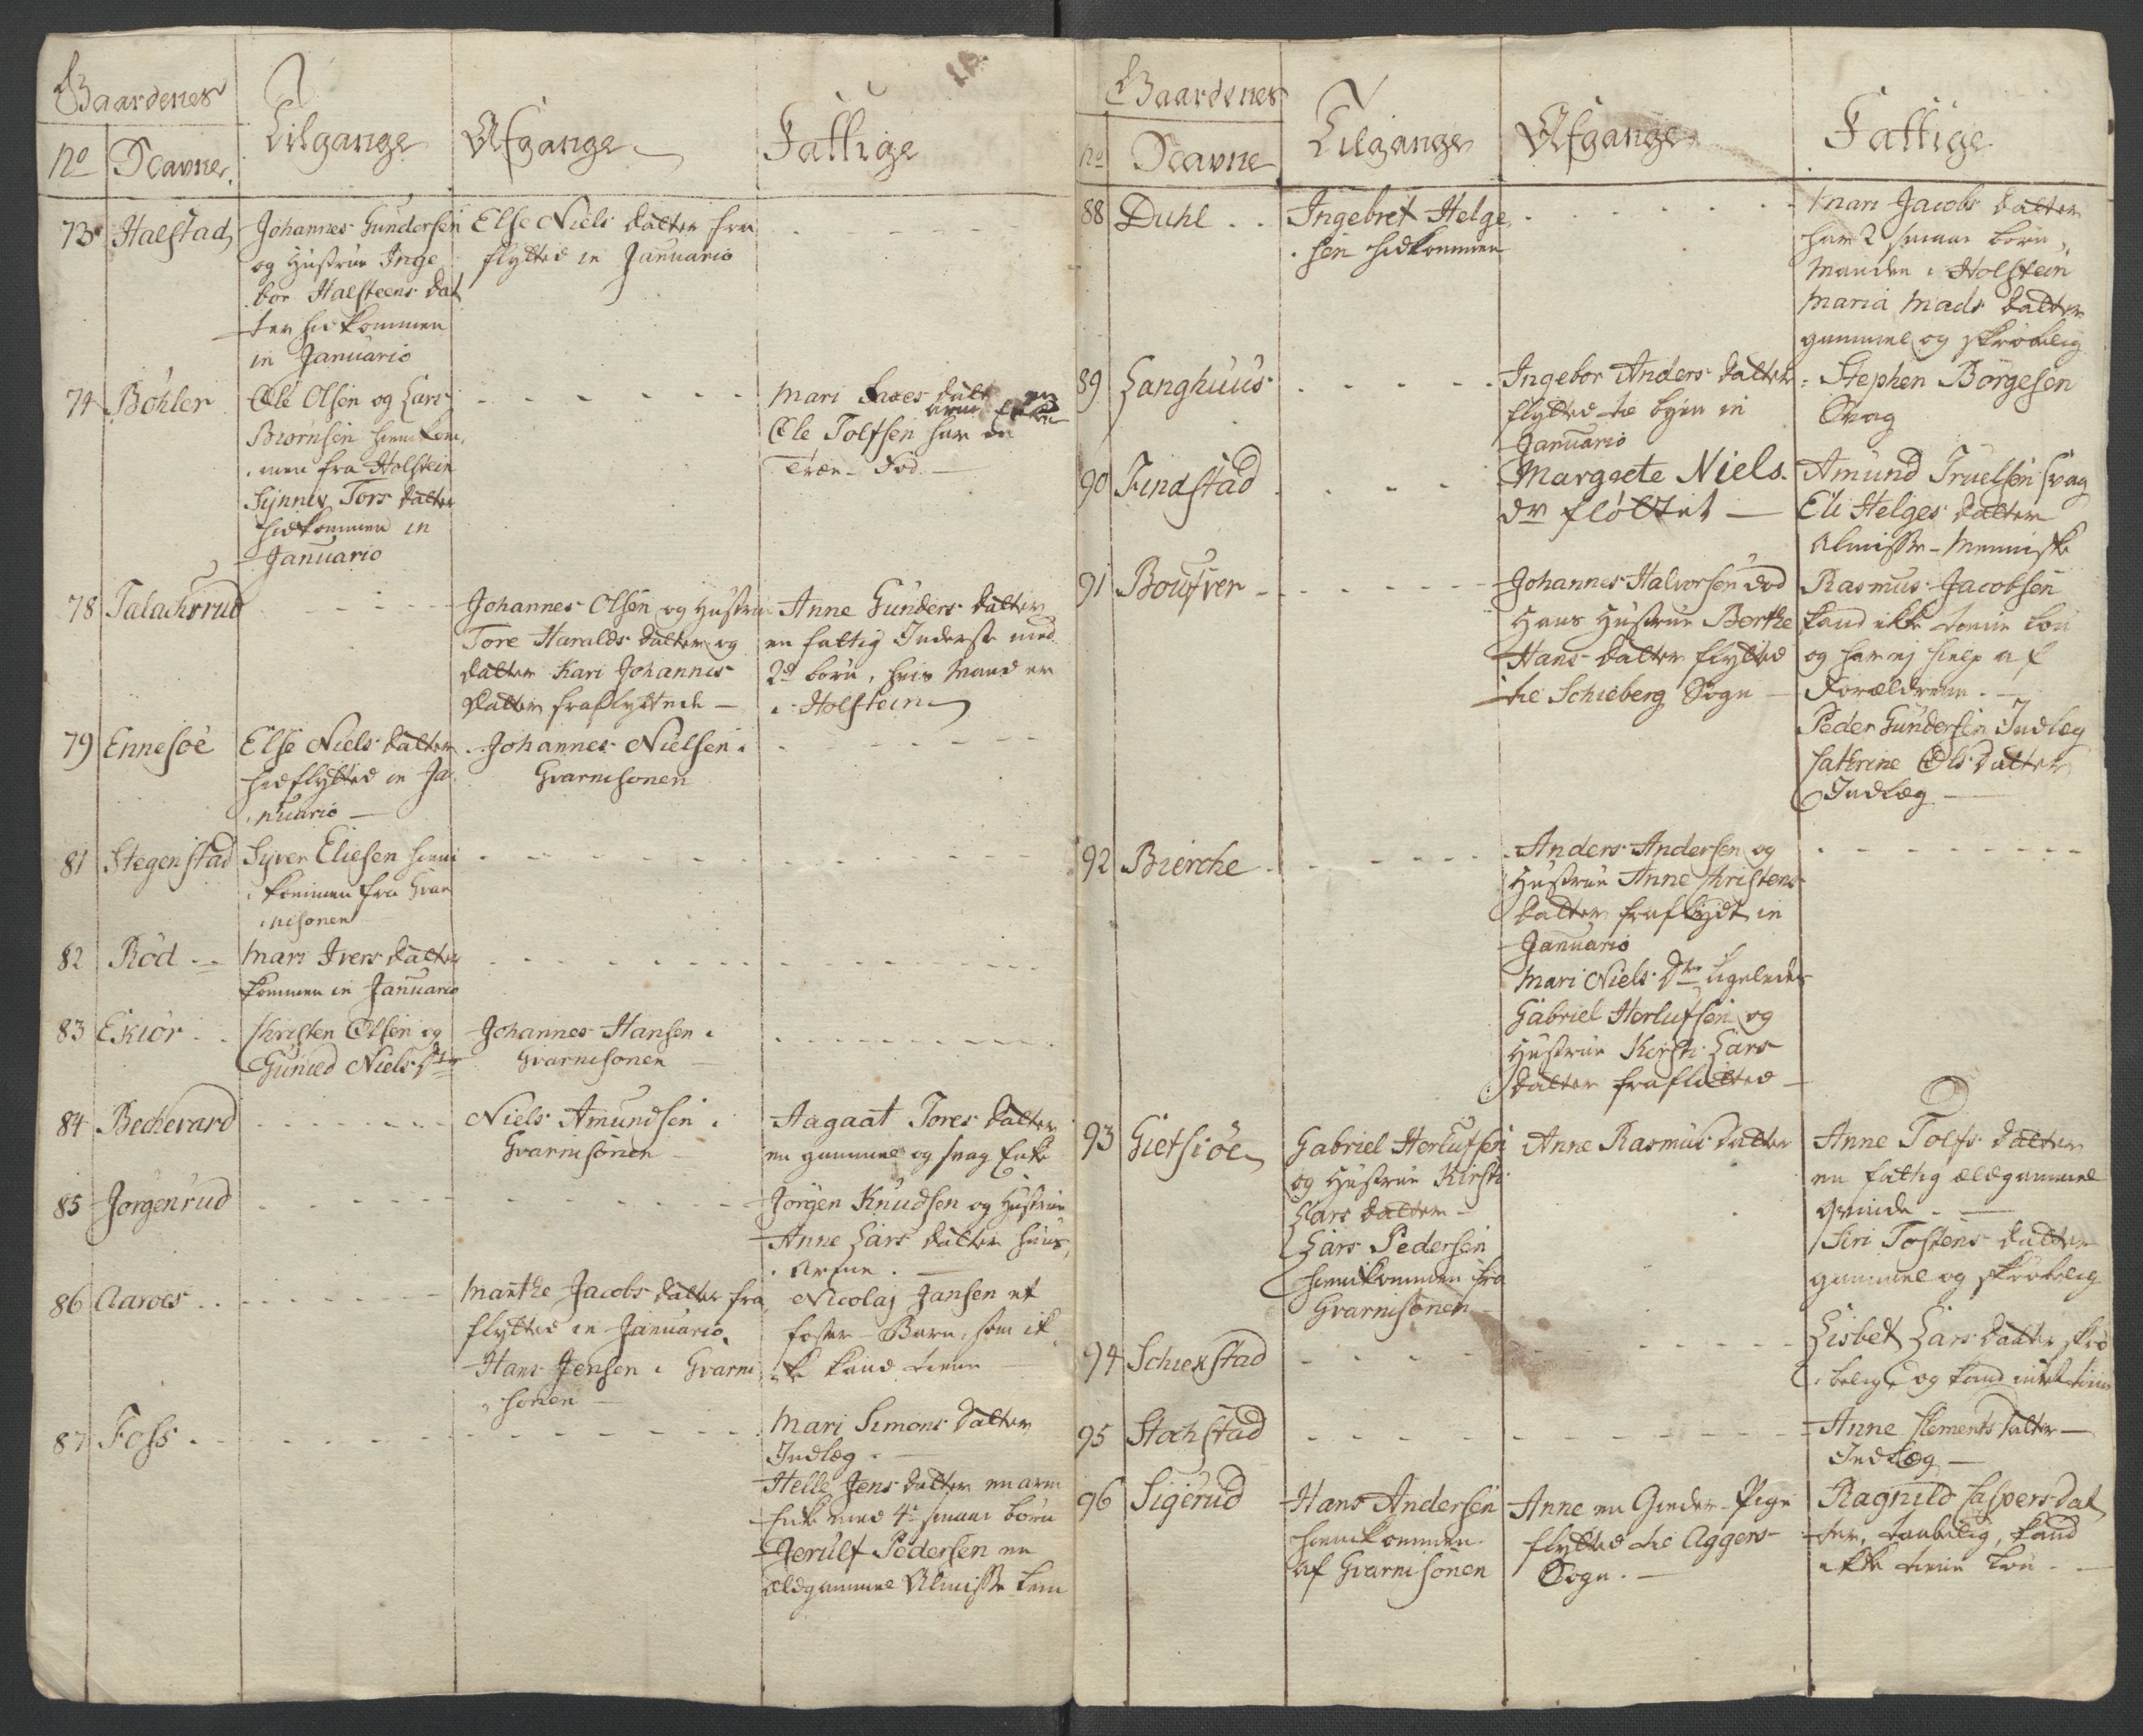 Gaardenes
No Navne
Tilgange
Afgange
Fattige
73 Halstad
Johannes Gundersen
og Hustrue Inge
bor Halsteens dat
ter hidkommen
in Januario
Else Niels datter fra
flytted in Januario
74 Böhler
Ole Olsen og Lars
Biørnsen hiemkom
men fra Holstein
Synnev Tors datter
hidkommen in
Januario
Mari
Ole Tolfsen har en
Træe-Fod
78 Talachsrud
Johannes Olsen og Hustru
Tore Haralds datter og
datter Kari Johannes
datter fraflyttede
Anne Gunders datter
en fattig Inderste med
2de børn, hvis Mand er
i Holstein
79 Ennesöe
Else Niels datter
hidflytted in Ja
nuario
Johannes Nielsen i
Gvarnisonen
81 Stegenstad
Syver Eliesen hiem
kommen fra Gvar
nisonen
82 Röd
Mari Ivers datter
kommen in Januario
83 Ekiör
Christen Olsen og
Gunild Niels Dtr
Johannes Hansen i
Gvarnisonen
84 Becherard
Niels Amundsen i
Gvarnisonen
Aagaat Tores datter
en gammel og svag Enke
85 Jörgenrud
Jörgen Knudsen og Hustrue
Anne Lars datter huus
arme
86 Aaroes
Marthe Jacobs datter fra
flytted in Januario
Hans Jensen i Gvarni
sonen
Nicolaj Jansen et
foster-Barn, som ik
ke kand tiene
87 Foss
Mari Simons datter
Indlæg
Helle Jens datter en arm
Enke med 4re smaae börn
Jerulf Pedersen en
ældgammel Almisse Lem
Gaardenes
No Navne
Tilgange
Afgange
Fattige
88 Duhl
Ingebret Helge
sen hidkommen
Mari Jacobs datter
har 2 smaae børn,
Manden i Holstein
Maria Mads datter
gammel og skröbelig
89 Langhuus
Ingebor Anders datter
flytted til byen in
Januario
Stephen Börgesen
svag
90 Findstad
Margrete Niels
dr flöttet
Amund Truelsen svag
Eli Helges datter
Almisse-Menniske
91 Boufver
Johannes Halvorsen död
Hans Hustrue Berthe
Hans datter flytted
til Schieberg Sogn
Rasmus Jacobsen
kand ikke tiene Løn
og har ej hielp af
Forældrene
Peder Gundersen Indlæg
Cathrine Ols datter
Indlæg
92 Bierche
Anders Andersen og
Hustrue Anne Christens
datter fraflydt in
Januario
Mari Niels Dtr ligeledes
Gabriel Herlufsen og
Hustrue Kirsti Lars
datter fraflötted
93 Gietsiöe
Gabriel Herlufsen
og Hustrue Kirsti
Lars datter
Lars Pedersen
hiemkommen fra
Gvarnisonen
Anne Rasmus datter
Anne Tolfs datter
en fattig ældgammel
qvinde
Siri Tostens datter
gammel og skröbelig
94 Schiekstad
Lisbet Lars datter skrö
belig og kand intet tiene
95 Stochstad
Anne Clements datter
Indlæg
96 Sigerud
Hans Andersen
hiemkommen
af Gvarnisonen
Anne en Gieder-Pige
flytted til Aggers
Sogn
Ragnild Caspersdat
ter, taabelig, kand
ikke tiene Løn